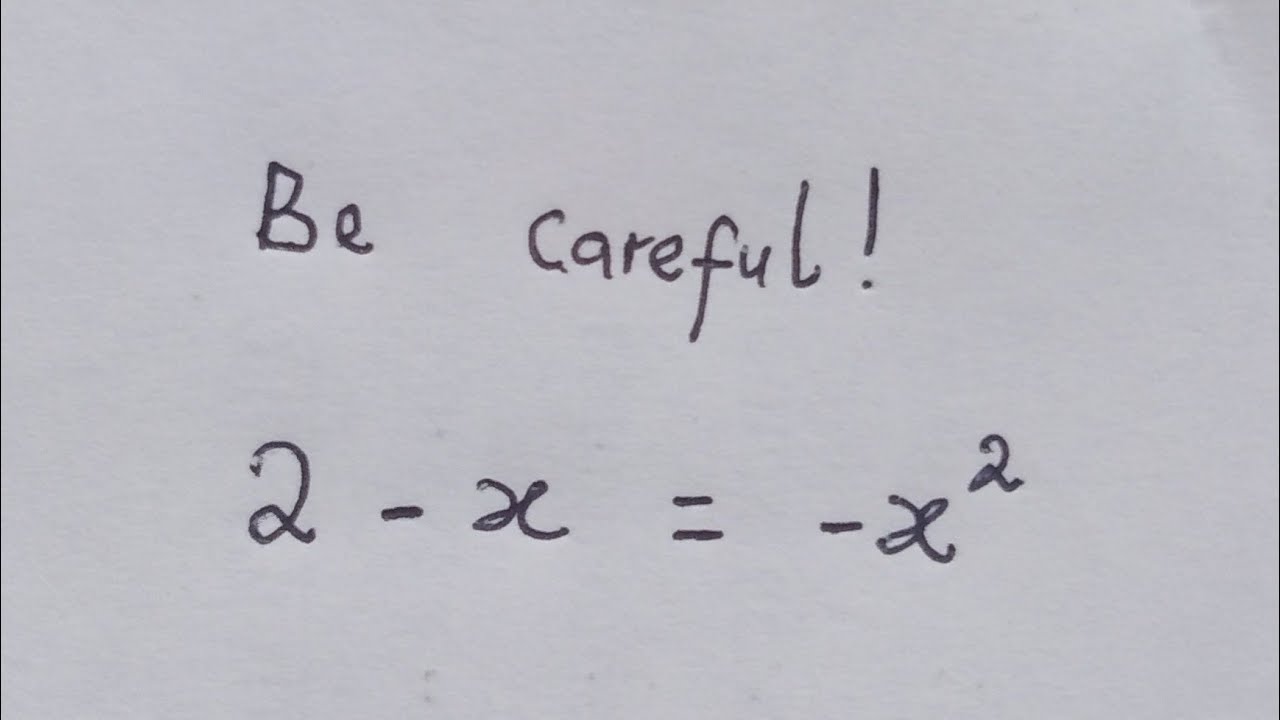 Be careful!
2 - x = -x²